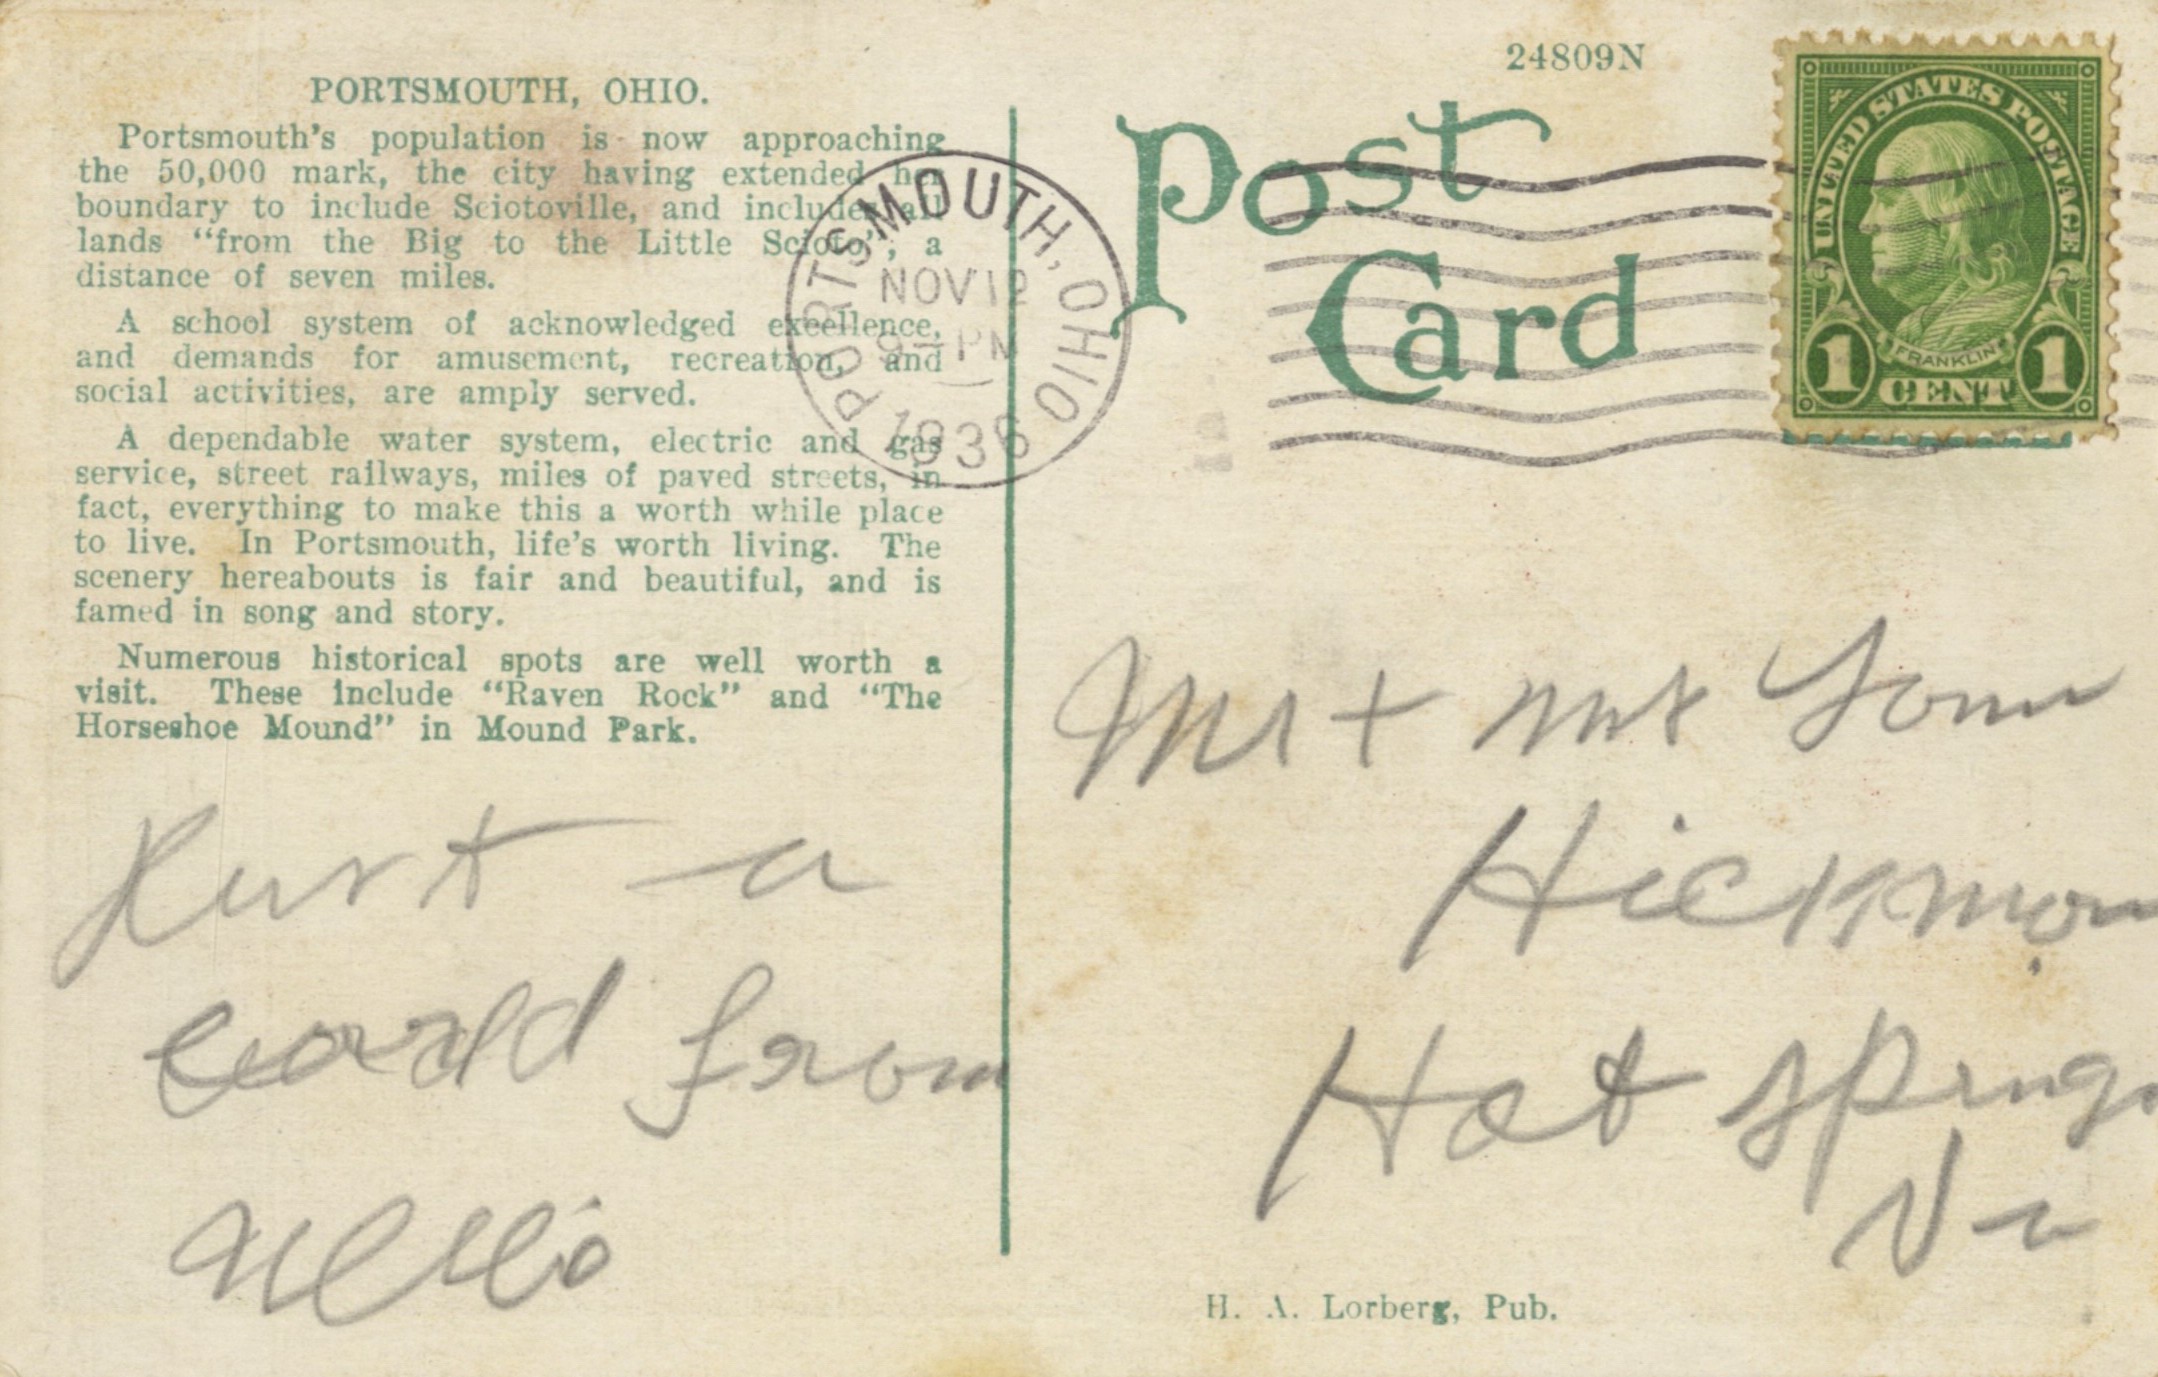 PORTSMOUTH, OHIO.
Portsmouth's population is now approaching
the 50,000 mark, the city having extended her
boundary to include Sciotoville, and includes all
lands "from the Big to the Little Scioto", a
distance of seven miles.
A school system of acknowledged excellence,
and demands for amusement, recreation, and
social activities, are amply served.
A dependable water system, electric and gas
service, street railways, miles of paved streets, in
fact, everything to make this a worth while place
to live. In Portsmouth, life's worth living. The
scenery hereabouts is fair and beautiful, and is
famed in song and story.
Numerous historical spots are well worth a
visit. These include "Raven Rock" and "The
Horseshoe Mound" in Mound Park.
Just a
card from
PORTSMOUTH, OHIO
NOV 12
9 - PM
1936
24809N
Post
Card
UNITED STATES POSTAGE
FRANKLIN
1 CENT 1
Mr + Mrs
Hickman
Hot Springs
H. A. Lorberg, Pub.